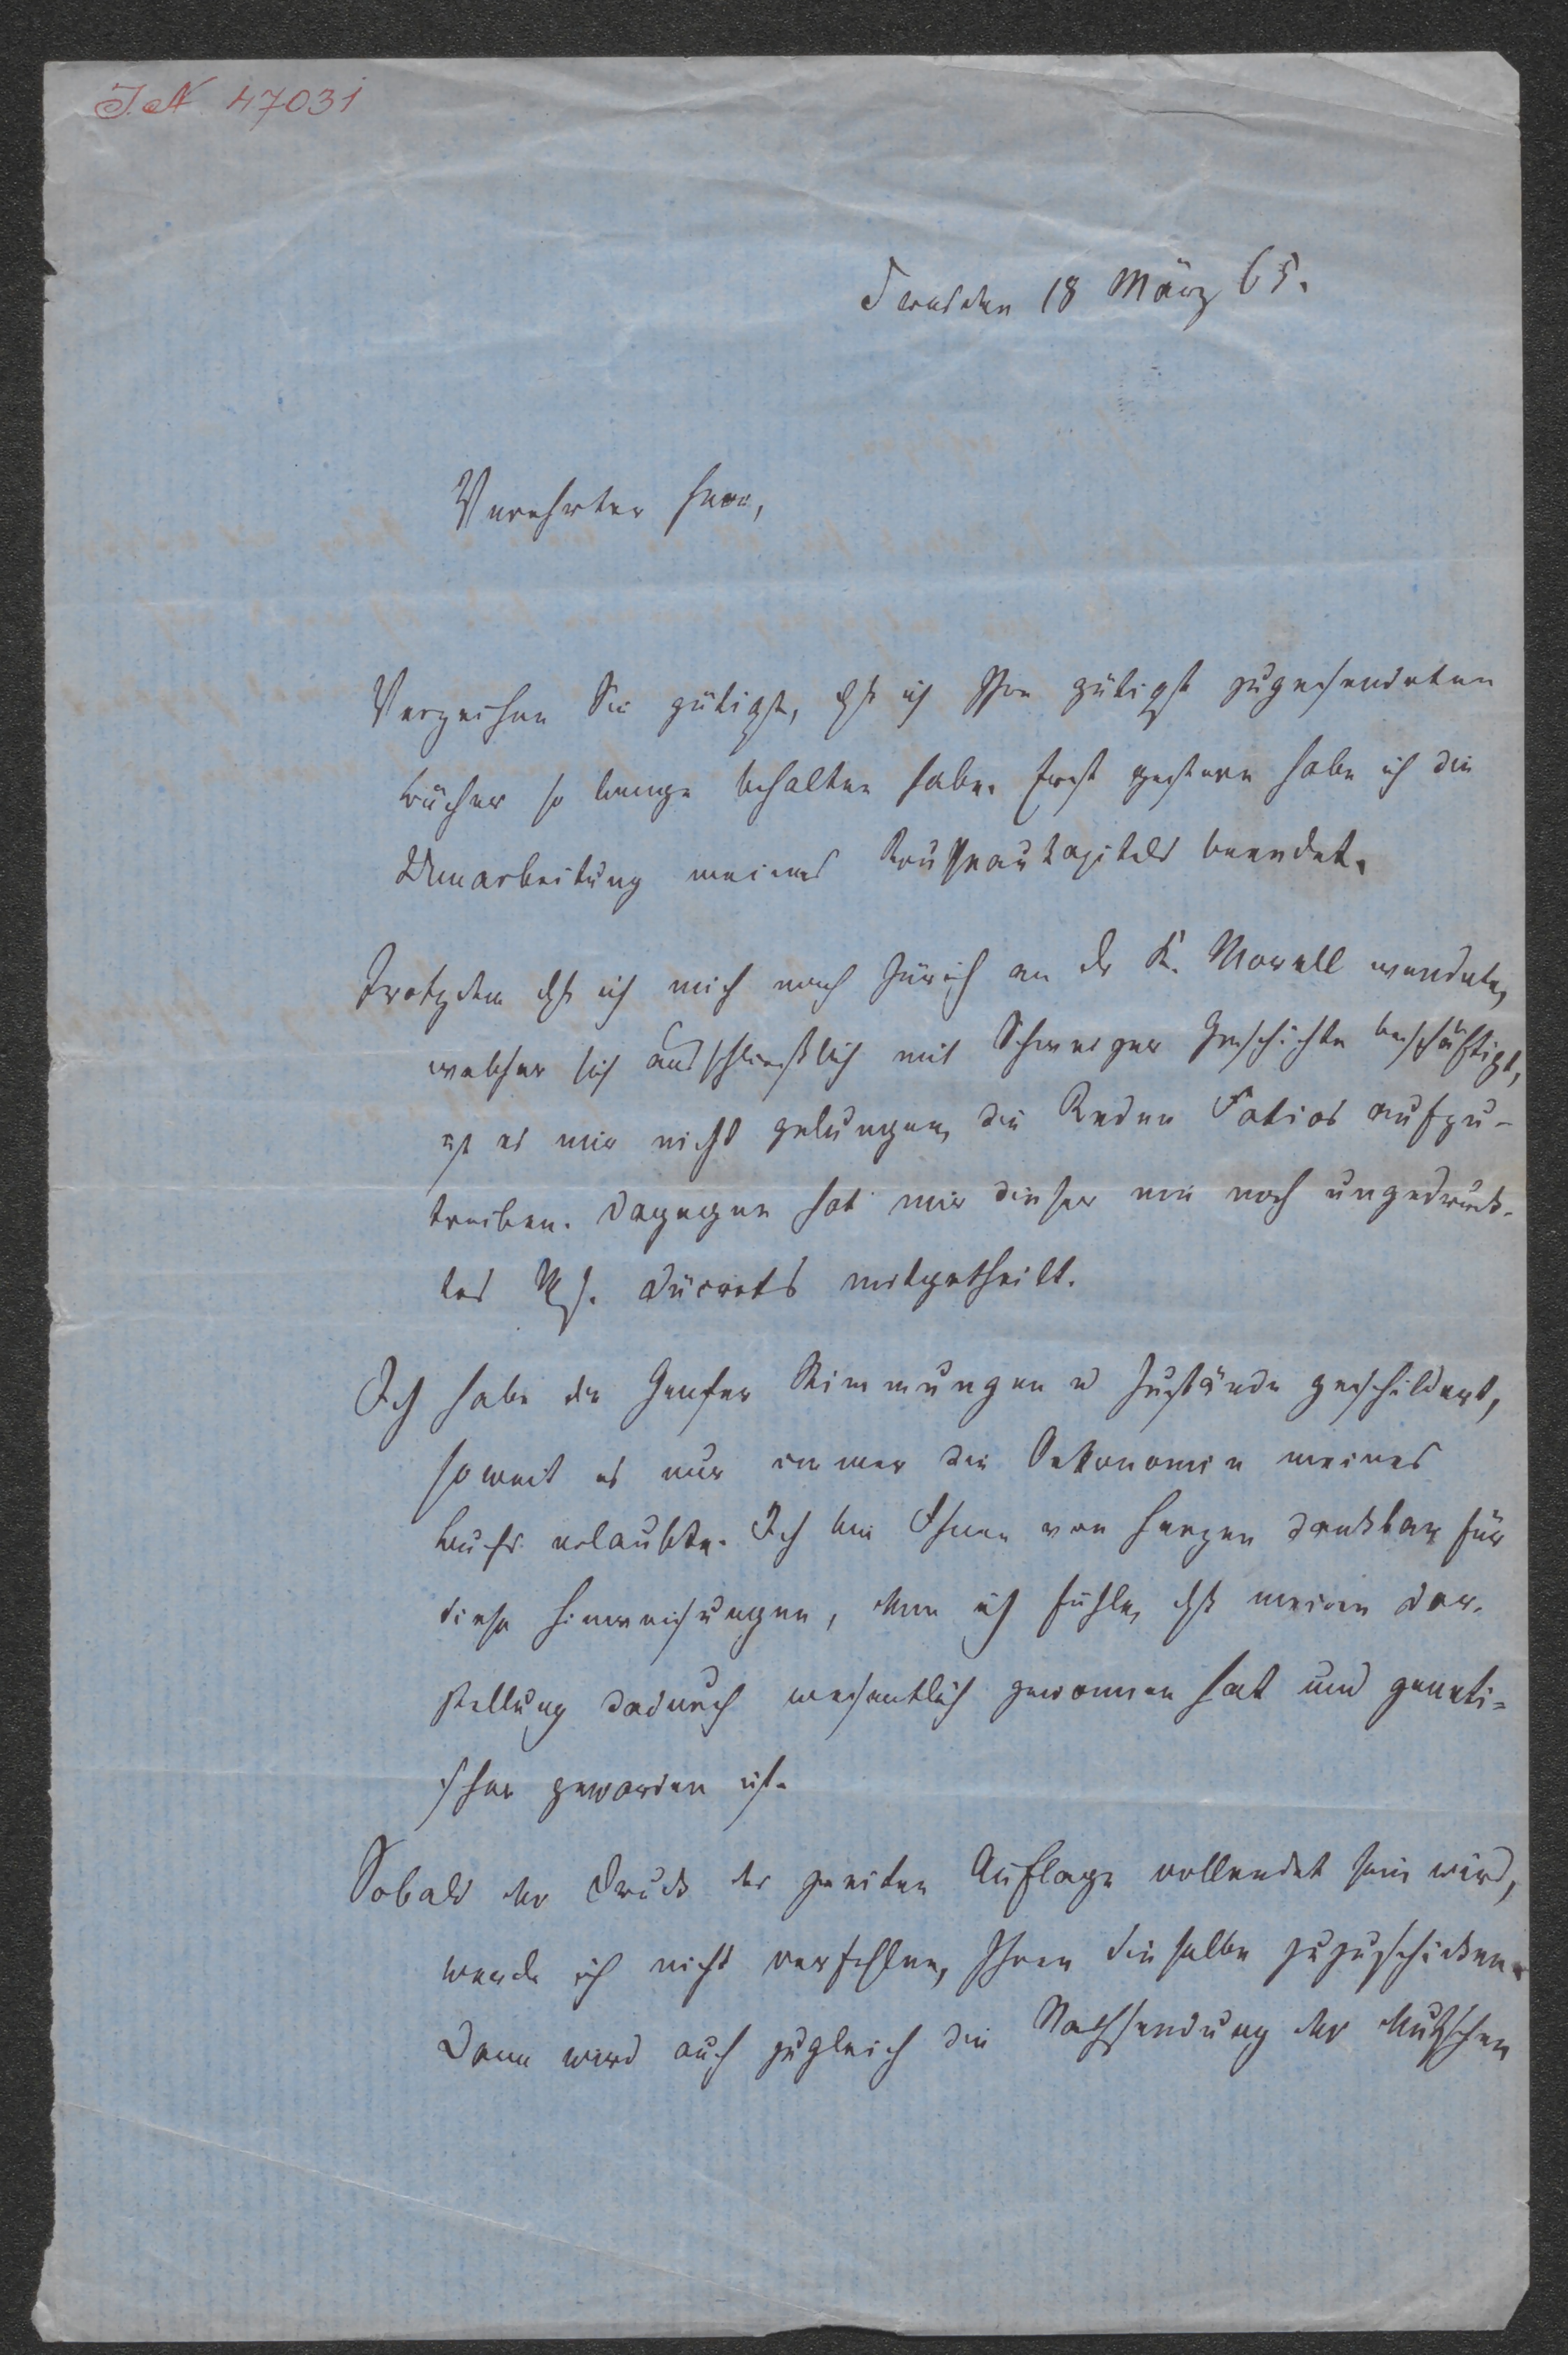 I. N. 47031
Dresden 18 März 65.
Verehrter Herr,
Verzeihen Sie gütigst, daß ich Ihre gütigst zugesendeten
Bücher so lange behalten habe. Erst gestern habe ich die
Umarbeitung meines Rousseaukapitels beendet.
Trotzdem daß ich mich nach Zürich an Dr K. Morell wendete,
welcher sich ausschließlich mit Schweizer Geschichte beschäftigt,
ist es mir nicht gelungen, die Reden Fatios aufzu-
treiben. Dagegen hat mir dieser ein noch ungedruck-
tes Ms. Ducrets mitgetheilt.
Ich habe die Genfer Stimmungen u Zustände geschildert,
soweit es nur immer die Oekonomie meines
Buchs erlaubte. Ich bin Ihnen von Herzen dankbar für
diese Hinweisungen, denn ich fühle, daß meine Dar-
stellung dadurch wesentlich gewonnen hat und geneti-
scher geworden ist.
Sobald der Druck der zweiten Auflage vollendet sein wird,
werde ich nicht verfehlen, Ihnen dieselbe zuzuschicken.
Dann wird auch zugleich die Nachsendung der deutschen